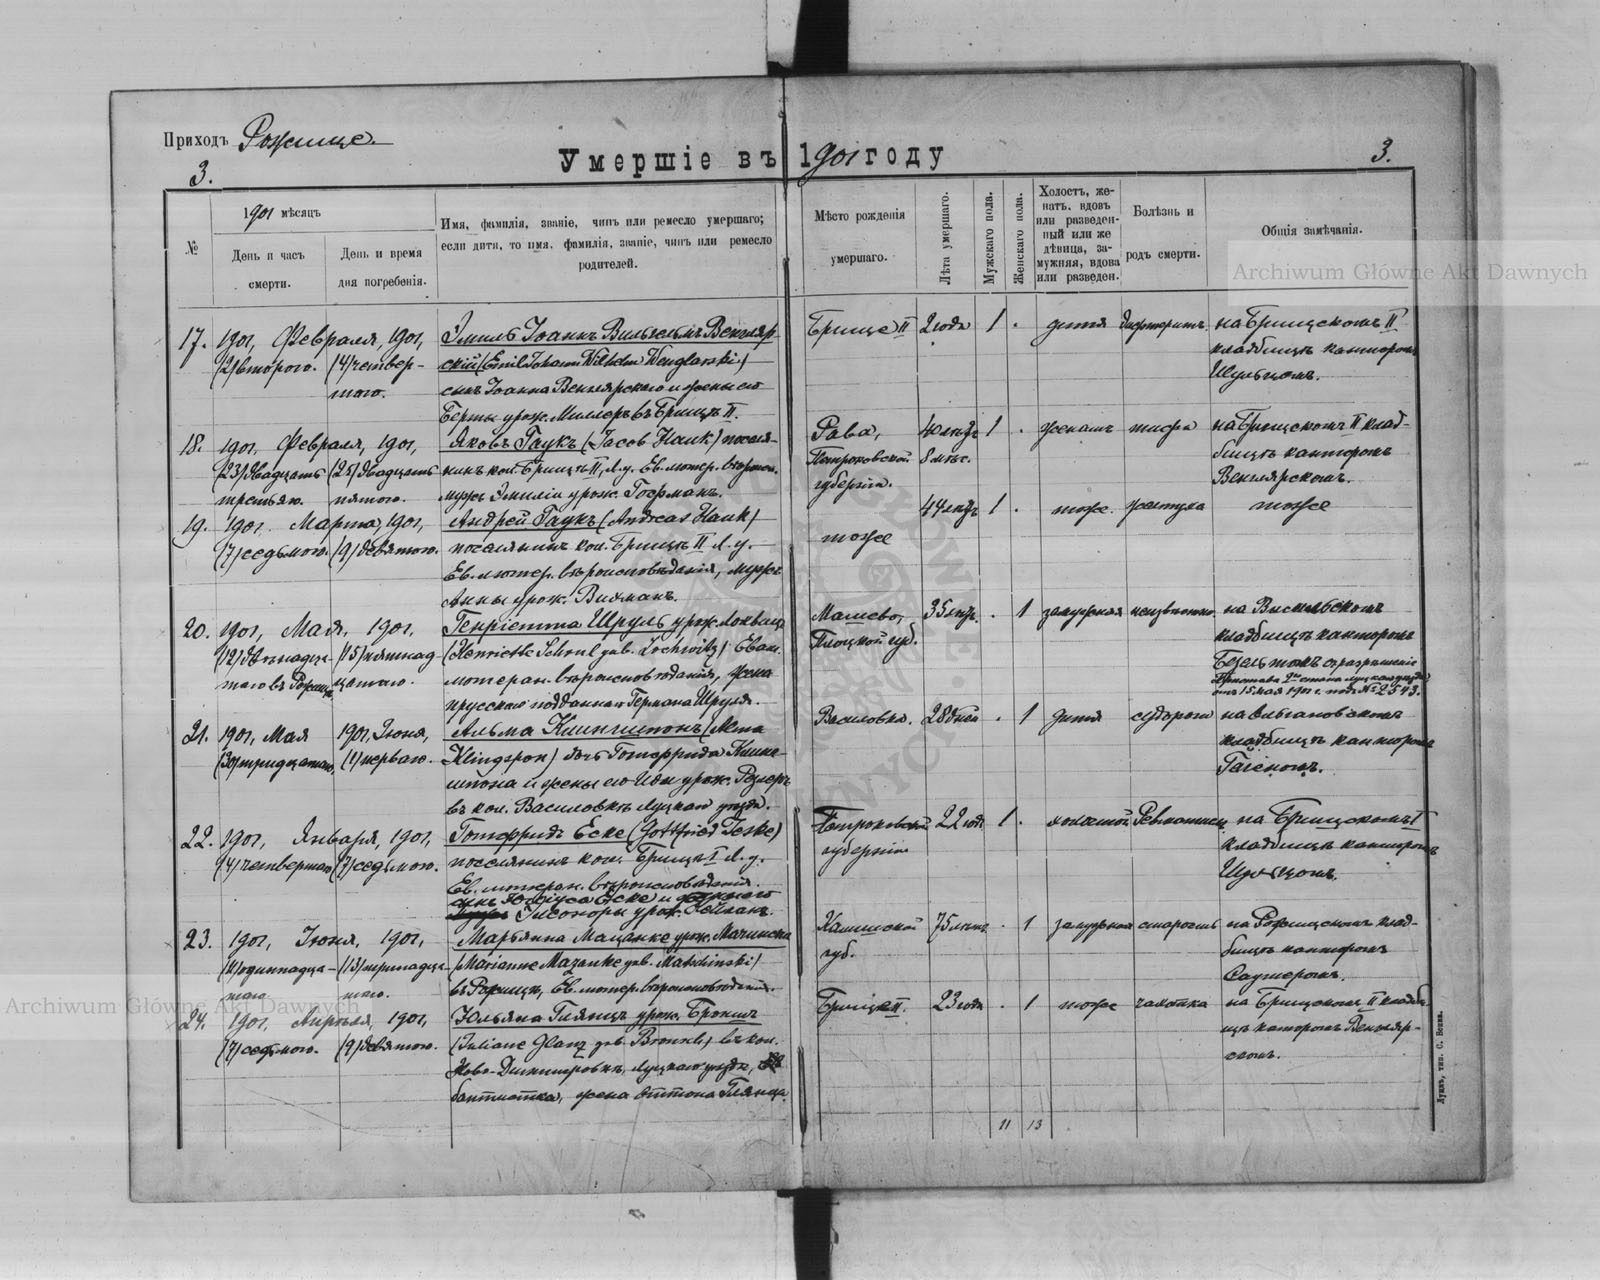 Приходъ Рожище.
Умершіе въ 1901 году
3.
3.
№
1901 мѣсяцъ
День и часъ смерти.
День и время дня погребенія.
Имя, фамилія, званіе, чинъ или ремесло умершаго;
если дитя, то имя, фамилія, званіе, чинъ или ремесло
родителей.
Мѣсто рожденія
умершаго.
Лѣта умершаго.
Мужскаго пола.
Женскаго пола.
Холостъ, же-
натъ, вдовъ
или разведен-
ный или же
дѣвица, за-
мужняя, вдова
или разведен.
Болѣзнь и
родъ смерти.
Общія замѣчанія.
Archiwum Główne Akt Dawnych
17. 1901, Февраля, 1901, Эмиль Іоаннъ Вильгельмъ Венгляр- Брище II 2 года 1 . дитя дифтеритъ на Брищскомъ II
(2) второго. (4) четвер- скій (Emil Johann Wilhelm Wenglarski) кладбищѣ канторомъ
таго. сынъ Іоанна Венглярскаго и жены его Шульцомъ.
Берты урож. Миллеръ въ Брищѣ II.
18. 1901, Февраля, 1901, Яковъ Гаукъ (Jacob Hauk) поселя- Рава, 40 лѣтъ 1 . женатъ тифъ на Брищскомъ II клад-
(23) двадцать (25) двадцать нинъ кол. Брищъ II, Л. у. Ев. лютер. вѣроисп. Петроковской 8 мѣс. бищѣ канторомъ
третьяго. пятого. мужъ Эмиліи урож. Гофманъ. губерніи. Венглярскомъ.
19. 1901, Марта, 1901, Андрей Гаукъ (Andreas Hauk) тоже 44 лѣтъ 1 . тоже. желтуха тоже
(7) седьмого. (9) девятого. поселянинъ кол. Брищъ II Л. у.
Ев. лютер. вѣроисповѣданія, мужъ
Анны урож. Вихманъ.
20. 1901, Мая, 1901, Генріетта Шруль урож. Лохвицъ Машево, 35 лѣтъ . 1 замужняя неизвѣстно. на Висильскомъ
(12) двѣнадца- (15) пятнад- (Henriette Schrul geb. Lochwitz) Еван. Плоцкой губ. кладбищѣ канторомъ
таго въ Рожищѣ цатаго. лютеран. вѣроисповѣданія, жена съ разрѣшенія
прусскаго подданнаго Германа Шруля. Пристава 2го стана Луцкаго уѣзда
отъ 15 мая 1901 г. подъ № 2543.
21. 1901, Мая 1901, Іюня, Альма Клингшпонъ (Alma Василовка. 28 дней . 1 дитя судороги на
(30) тридцатаго. (1) перваго. дочь Готфрида Клинг- кладбищѣ канторомъ
шпона и жены его Иды урож.
въ кол. Василовкѣ Луцкаго уѣзда.
22. 1901, Января, 1901, Готфридъ Еске (Gottfried Jeske) Петроковской 22 года 1 . холостой Ревматизмъ на Брищскомъ I
(4) четвертаго (7) седьмого. поселянинъ кол. Брищъ I Л. у. губерніи кладбищѣ канторомъ
Ев. лютеран. вѣроисповѣданія. Шульцомъ.
сынъ Юліуса Еске и
Элеоноры урож.
23. 1901, Іюня, 1901, Марьянна Мацанке урож. Мачинска Калишской 75 лѣтъ . 1 замужняя старость на Рожищскомъ клад-
(11) одиннадца- (13) тринадца- (Marianne Mazanke geb. Matschinski) губ. бищѣ канторомъ
таго. таго. въ Рожищѣ, Ев. лютер. вѣроисповѣданія.
24. 1901, Апрѣля, 1901, Юльяна Глянцъ урож. Бронкъ Брищѣ II. 23 года . 1 тоже чахотка на Брищскомъ II кладби-
(7) седьмого. (9) девятого. (Juliane Glanz geb. въ кол. щѣ канторомъ Венгляр-
Ново-Дмитровкѣ, Луцкаго уѣзда, скомъ.
баптистка, жена Оттона Глянца.
11 13
Луцкъ, тип. С. Бонка.
Archiwum Główne Akt Dawnych